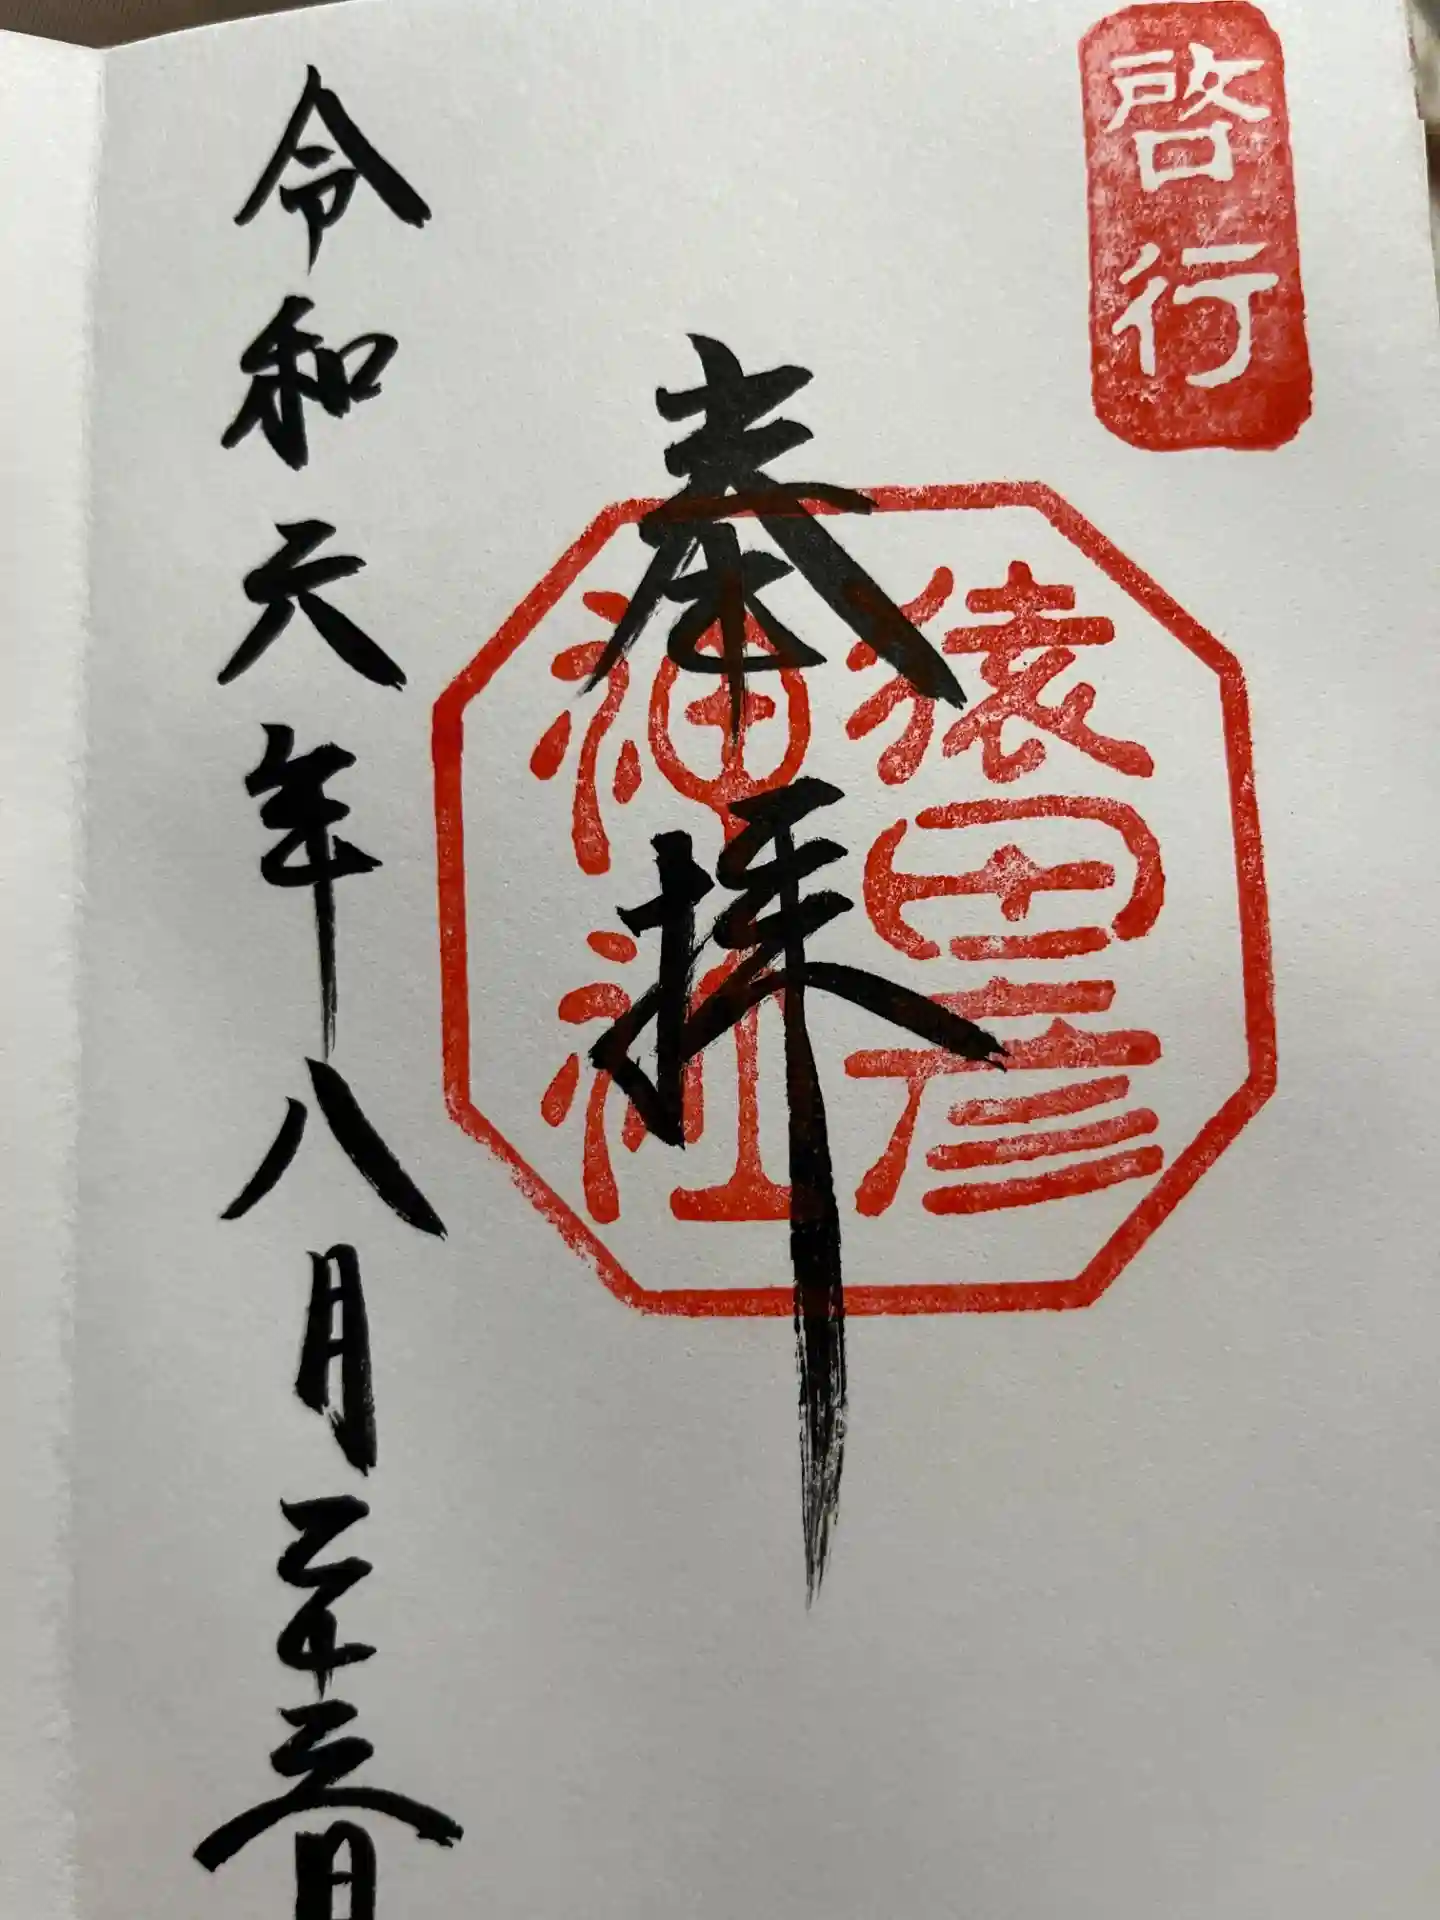 啓行
奉拝
猿田彦
神社
令和元年八月二十三日